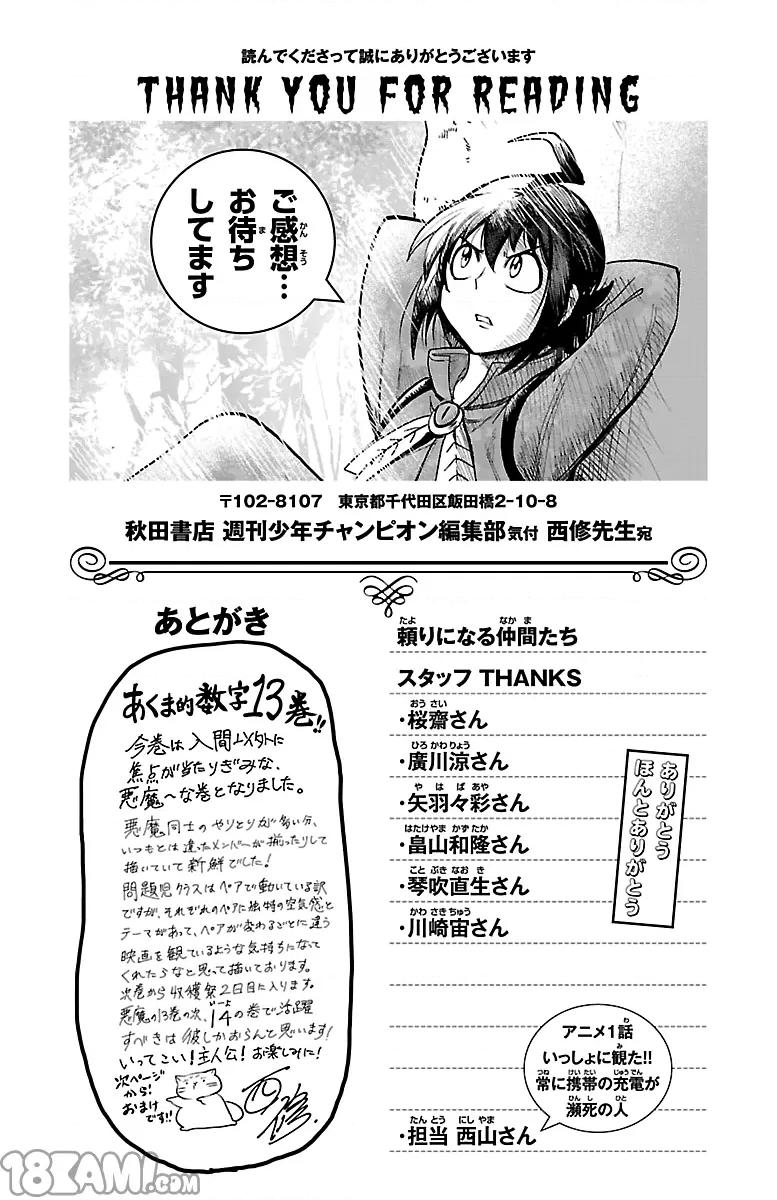 読んでくださって誠にありがとうございます
THANK YOU FOR READING
ご感想…
お待ち
してます
〒102-8107　東京都千代田区飯田橋2-10-8
秋田書店 週刊少年チャンピオン編集部気付 西修先生宛
あとがき
あくま的数字13巻!!
今巻は入間以外に
焦点が当たりぎみな、
悪魔〜な巻となりました。
悪魔同士のやりとりが多い分、
いつもとは違ったメンバーが揃ったりして
描いていて新鮮でした!
問題児クラスはペアで動いている訳
ですが、それぞれのペアに独特の空気感と
テーマがあって、ペアが変わるごとに違う
映画を観ているような気持ちになって
くれたらなと思って描いております。
次巻から収穫祭2日目に入ります。
悪魔の13巻の次、14の巻で活躍
すべきは彼しかおらんと思います!
いってこい!主人公!お楽しみに!
次ページ
から!
おまけ
です!!
西修
頼りになる仲間たち
スタッフ THANKS
・桜齋さん
・廣川涼さん
・矢羽々彩さん
・畠山和隆さん
・琴吹直生さん
・川崎宙さん
ありがとう
ほんとありがとう
アニメ1話
いっしょに観た!!
常に携帯の充電が
瀕死の人
・担当 西山さん
18KAMI.COM!